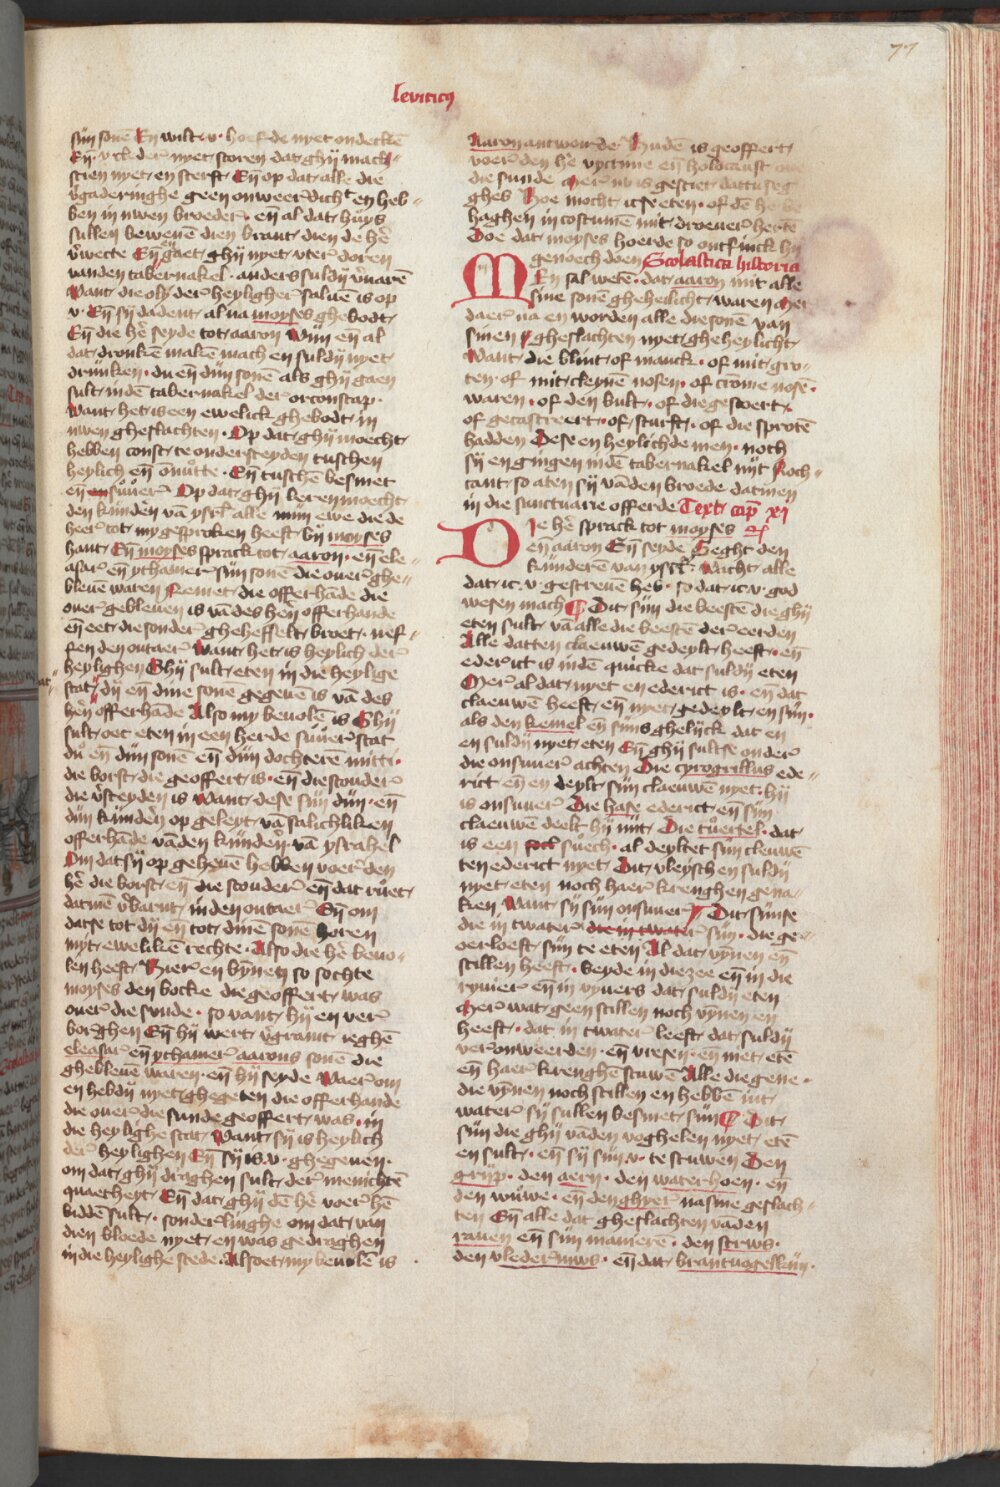 77
leviticus
sijn sonē Eñ wilt·v· hoefde nyet ondeckē
Eñ·v cleder nyet storen dat ghij mach
scien nyet en sterft Eñ op dat alle die
v̄gaderinghe geen onweerdich<sup>t</sup> en heb-
ben in uwen broeder· eñ al dat huys
sullen bewenē dien brant dien de hē
v̄wecte Eñ gaet ghij nyet vter doren
vanden tabernakel· anders suldij v̄uarē
Want die olij der heyligher saluē is op
v· Eñ sij dadent al na moyses ghebodt
Eñ die hē seyde tot aaron Wijn eñ al
dat dronkē makē mach en suldij nyet
drincken· du eñ dijn sonē als ghij gaen
sult indē tabernakel der orconscap·
Want het is een ewelick ghebodt in
uwen gheslachten· Op dat ghij moecht
hebben const te ondersceyden tusschen
heylich eñ ōnutte· Eñ tusschē besmet
eñ suuer Op dat ghij leren moecht
den kijndē vā ysrl̄ alle mijn ewe die de
heer tot my gesproken heeft bij moyses
hant Eñ moyses sprack tot aaron· eñ ele-
asar eñ ythamer sijn sonē die ouer ghe-
bleuē waren Nemet die offerhāde die
ouer gebleuen is vā des hē offerhande
eñ eet die sonder gheheffelt broet· nef-
fen den outaer Want het is heylich der
heylighen Ghij sult eten in die heylige
stat dij eñ dine sone gegeuē is vā des
hē offerhāde Also my beuolē is Ghij
sult oec eten in een herde suuer stat
du eñ dijn sonē eñ dijn dochterē mitti·
die borst die geoffert is· eñ die scouder
die v̄sceyden is Want dese sijn dijn· eñ
dijn kijnden op geleyt vā salichliken
offerhāde vāden kijnder vā ysrahel
Om dat sij op geheuē hebben voer den
hē die borst eñ die scouder eñ dat ruet
datmē v̄barnt in den outaer Eñ om
datse tot dij eñ tot dine sonē horen
myt ewelikē rechte· Also die hē beuo-
len heeft Hier en bynnē so sochte
moyses den bocke die geoffert was
ouer die sunde· so vant hij en ver
borghen Eñ hij wert v̄gramt ieghē
eleasar eñ ythamer aarons sonē die
ghebleuē waren· eñ hij seyde Waer om
en hebdij nyet ghegeten die offerhande
die ouer die sunde geoffert was· in
die heylighe stat Want sij is heylich
der heylighen Eñ sij is·v· ghegeuen·
om dat ghij draghen sult der menichtē
quaetheyt Eñ dat ghij dē hē voer hē
biddē sult· sonderlinghe om dat van
dien bloede nyet en was gedraghen
in die heylighe stede· Alsoet my beuolē is
Aaron antwoorde Hudē is geoffert
voer den hē victime eñ holocaust
die sunde
ghes Hoe mocht icse eten· of dē
haghen in costumē mit droeuer hertē
Doe dat moyses hoerde so ontfinck hij
genoech doen Scolastica historia
MEn sal wetē· dat aaron mit alle
sine sonē gheheilicht waren
daer na en worden alle die sonē van
sinen gheslachten nyet gheheylicht·
Want die blint of manck· of mit gro-
ten of mit cleynē nosen· of cromē nosē·
waren· of den bult· of die gescoert
of gecastreert· of scurft· of die sprotē
hadden Dese en heylichde men· noch
sij en gingen indē tabernakel mit Noch-
tant so aten sij vāden broede datmen
in die sanctuarie offerde Text cap̄ xj
DIe hē sprack tot moyses
eñ aaron Eñ seyde Seght den
kijnderē van ysrl̄ Wacht alle
dat ic·v· gescreuē heb· so dat ic·v· god
wesen mach Dit sijn die beestē die ghij
eten sult vā alle die beestē der eerden
Alle datten claeuwē gedeylt heeft· eñ
edericht is indē quicke dat suldij eten
Mer al dat nyet en edericht is· eñ dat
claeuwē heeft· eñ nyet gedeylt en sijn·
als den kemel eñ sijns ghelijck dat en
en suldij nyet eten Eñ ghij sultse onder
die onsuuer achten Die cyrogrillus ede-
rict eñ en deylt sijn claeuwē nyet· hij
is onsuuer Die hase edericht eñ sijn
claeuwē deelt hij niit Die tuertel· dat
is een soech· al deyltet sijn cleuwē
ten edericht nyet· Dit vleysch en suldij
nyet eten noch haer krenghen gena-
ken Want sij sijn onsuuer Dit sijnse
die in twater die in twater sijn· die ge-
oerloeft sijn te eten Al dat vynen eñ
scillen heeft· beyde in die zee eñ in die
ryuier eñ in vyuers dat suldij eten
Mer wat geen scillen noch vynen en
heeft· dat in twater leeft dat suldij
veronweerden· eñ vresen· en niet etē
eñ haer krenghē scuwē Alle die gene·
die vynen noch scillen en hebbē int
water sij sullen besmet sijn Dit
sijn die ghij vāden voghelen nyet etē
en sult· eñ sij sijn·v· te scuwen Den
grijp· den aern· den waterhoen· eñ
den wuwe· eñ den ghyer na sine geslach-
ten Eñ alle dat gheslachten vaden
rauen eñ sijn manierē· den strws·
den vledermws· eñ dat brantuogellijn·